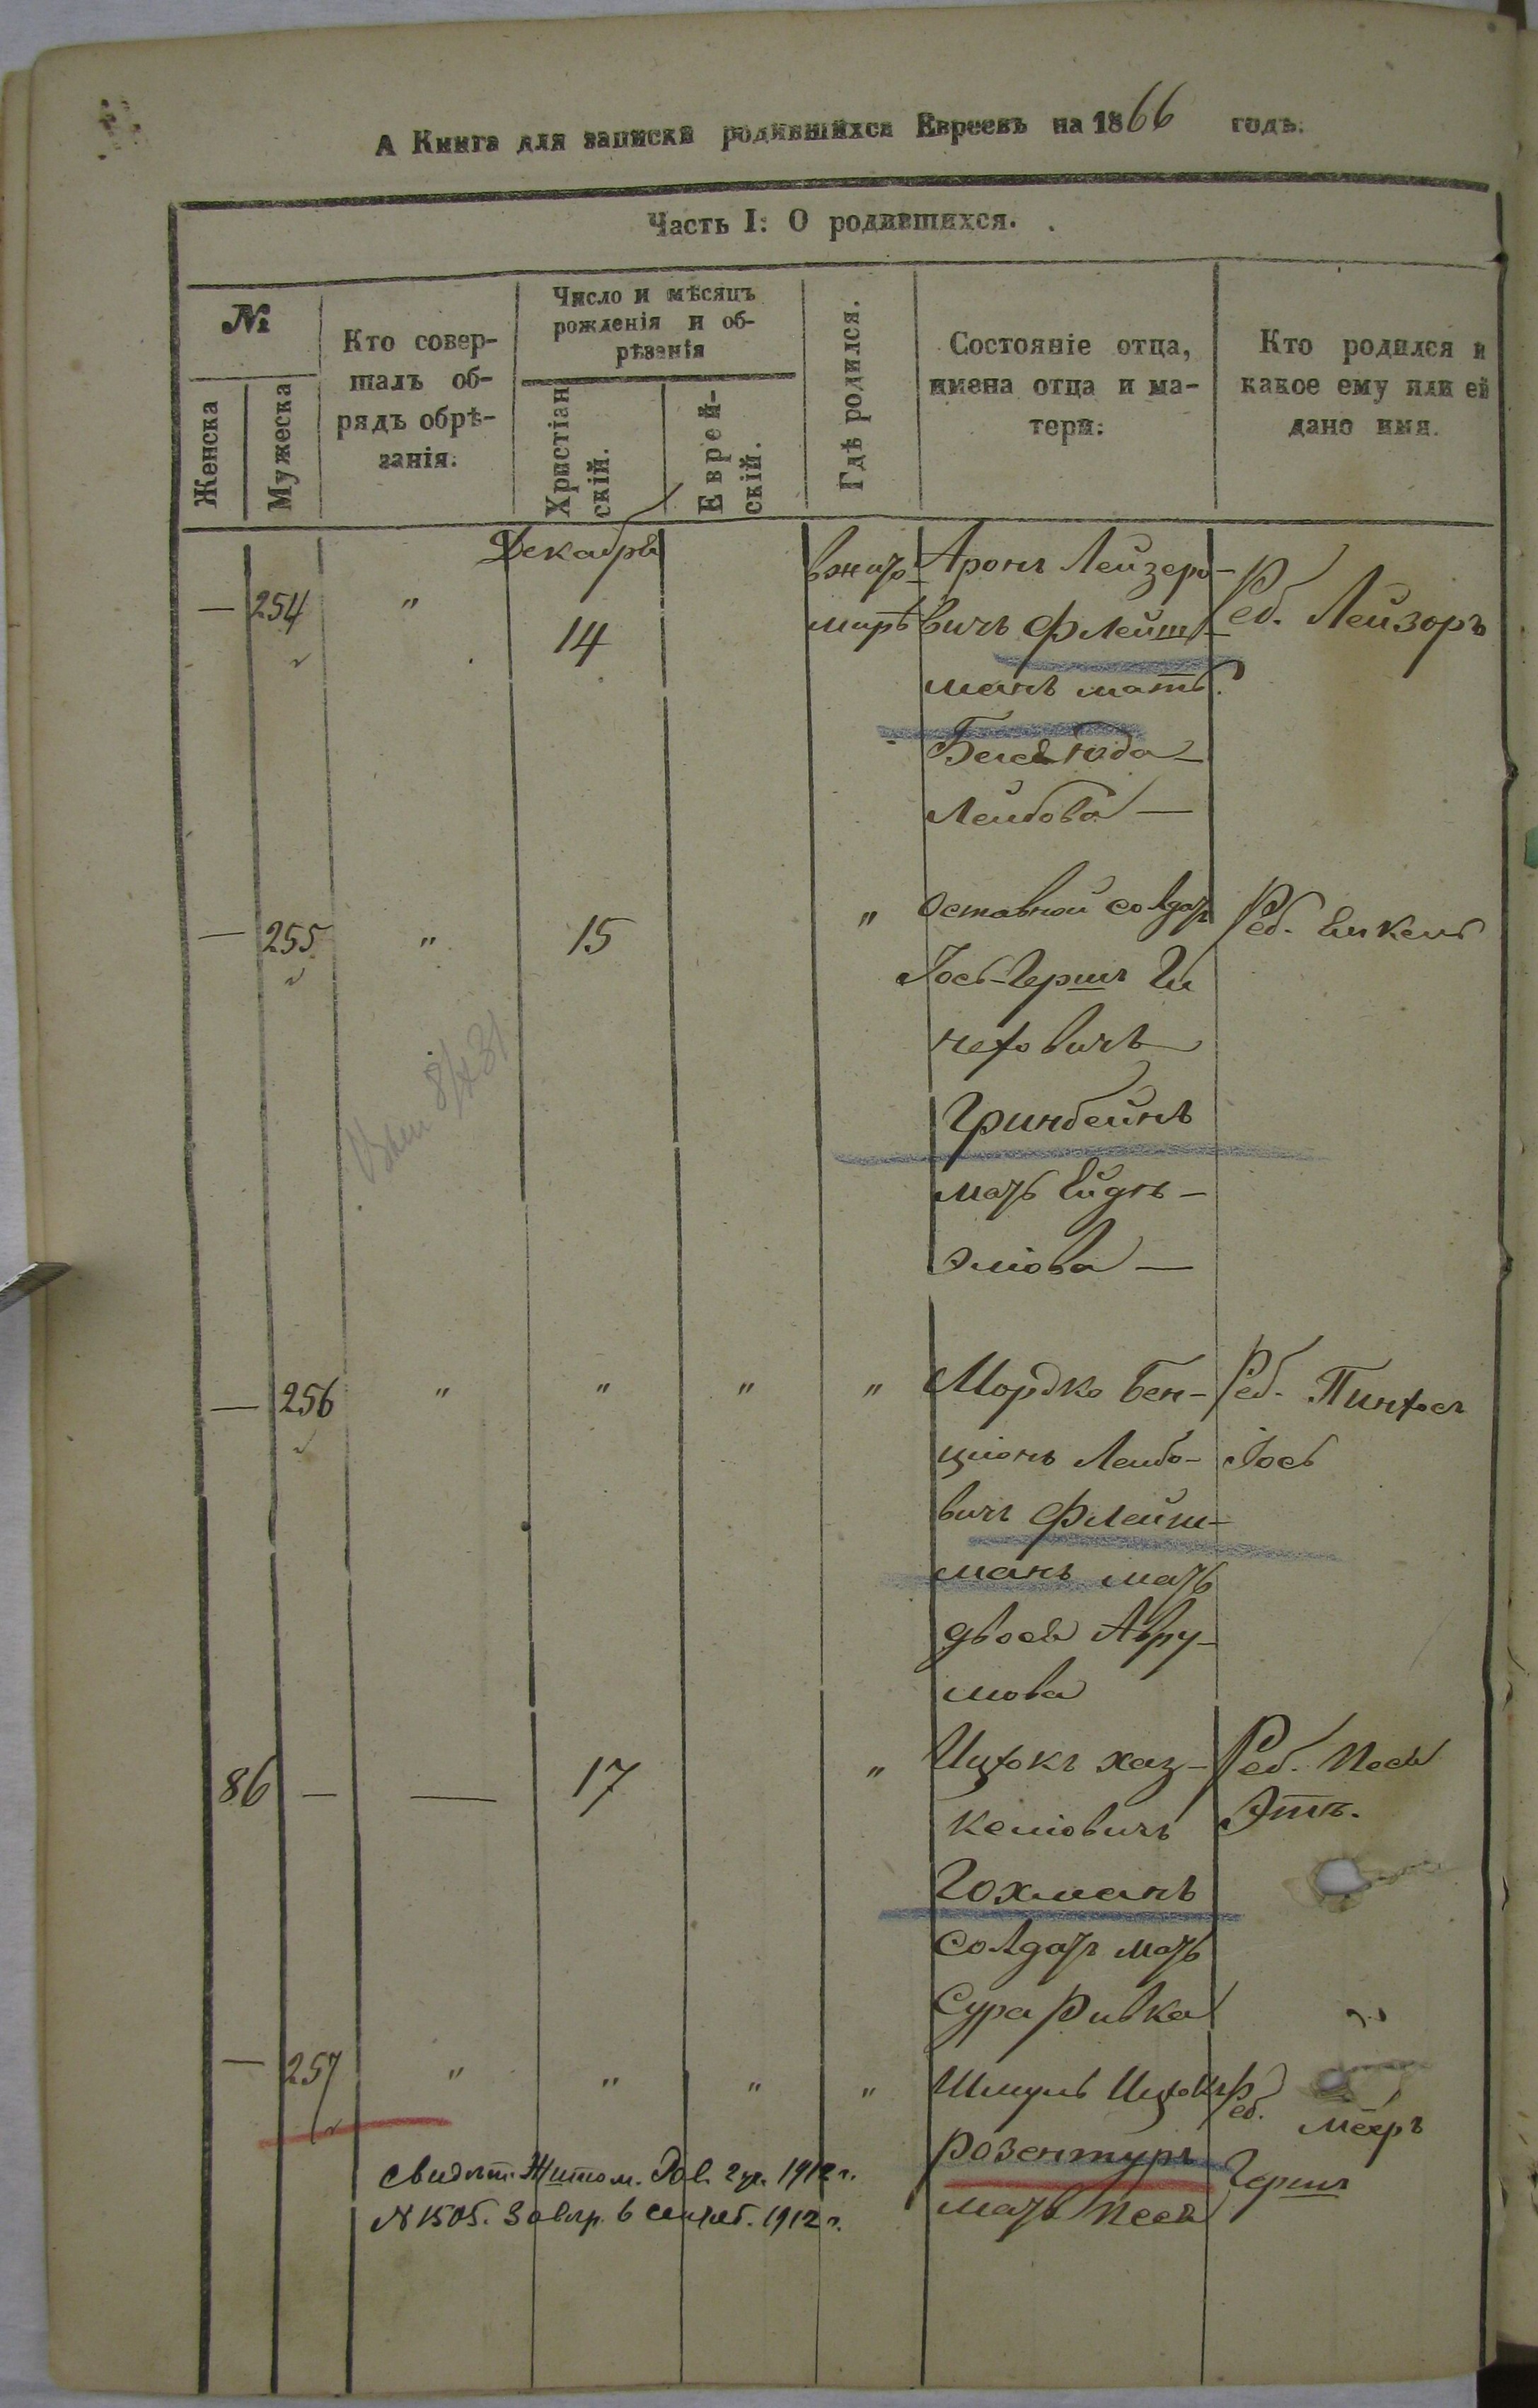 А Книга для записки родившихся Евреевъ на 1866 годъ.
Часть I: О родившихся.
№
Женска
Мужеска
Кто совер-
шалъ об-
рядъ обрѣ-
занія.
Число и мѣсяцъ
рожденія и об-
рѣзанія
Христіан
скій.
Еврей-
скій.
Гдѣ родился.
Состояніе отца,
имена отца и ма-
тери.
Кто родился и
какое ему или ей
дано имя.
Декабря
— 254 " 14
вжито-
мирѣ
Аронъ Лейзеро-
вичъ Флейш-
манъ мать
Лейбова —
Реб. Лейзоръ
— 255 " 15 "
оставной солдат
Іось-Гершъ
Гринбейнъ
мать Ейдль —
Эліова —
Реб. Енкель
— 256 " " " "
Мордко Бен-
ціонъ Лейбо-
вичъ Флейш-
манъ мать
двося Авру-
мова
Реб. Пинхос
Іось
86 — — 17 "
Ицхокъ хаз-
келіовичъ
Гохманъ
Солдат мать
Сура Ривка
Реб. Песя
— 257 " " " "
Шмуль Ицхокъ
Розентуръ
мать Песя
Реб. Меэръ
Гершъ
Свидѣт. Житом. 1912 г.
№ 1505. 1912 г.